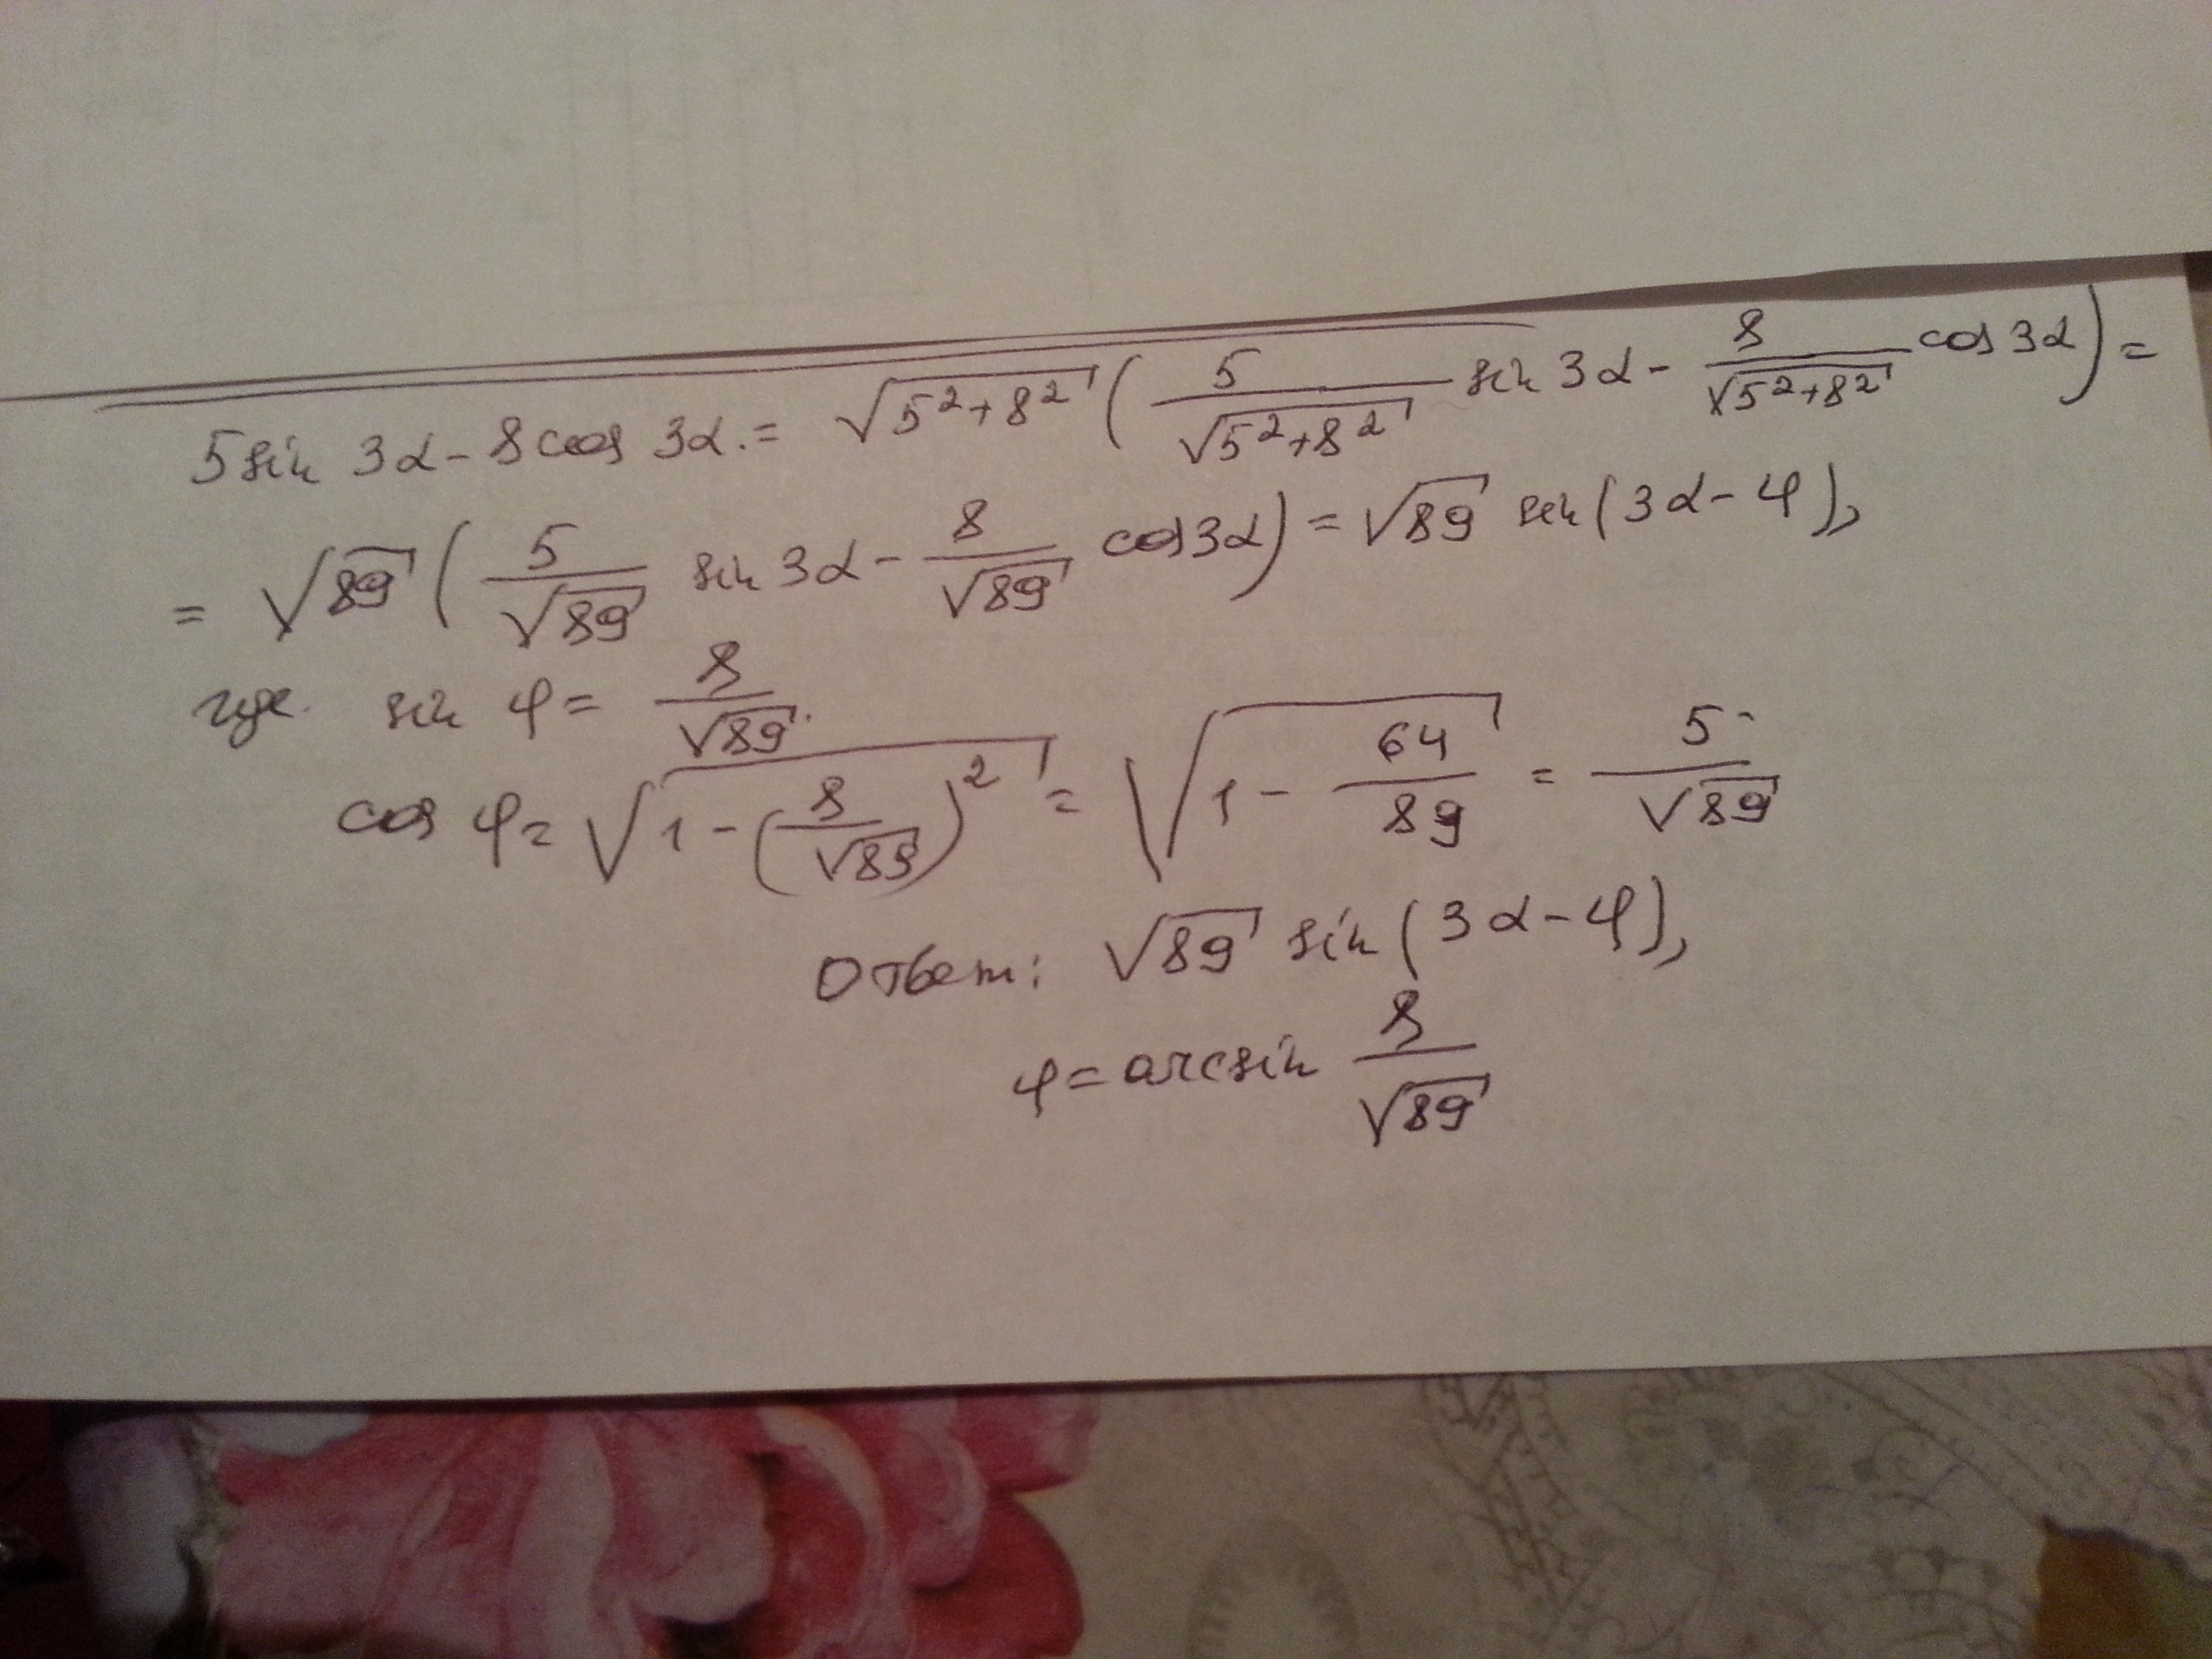 5 sin 3α - 8 cos 3α. = √(5²+8²) (5/√(5²+8²) sin 3α - 8/√(5²+8²) cos 3α) =
= √89 (5/√89 sin 3α - 8/√89 cos 3α) = √89 sin (3α - φ),
где. sin φ = 8/√89.
cos φ = √(1 - (8/√89)²) = √(1 - 64/89) = 5/√89
Ответ: √89 sin (3α - φ),
φ = arcsin 8/√89